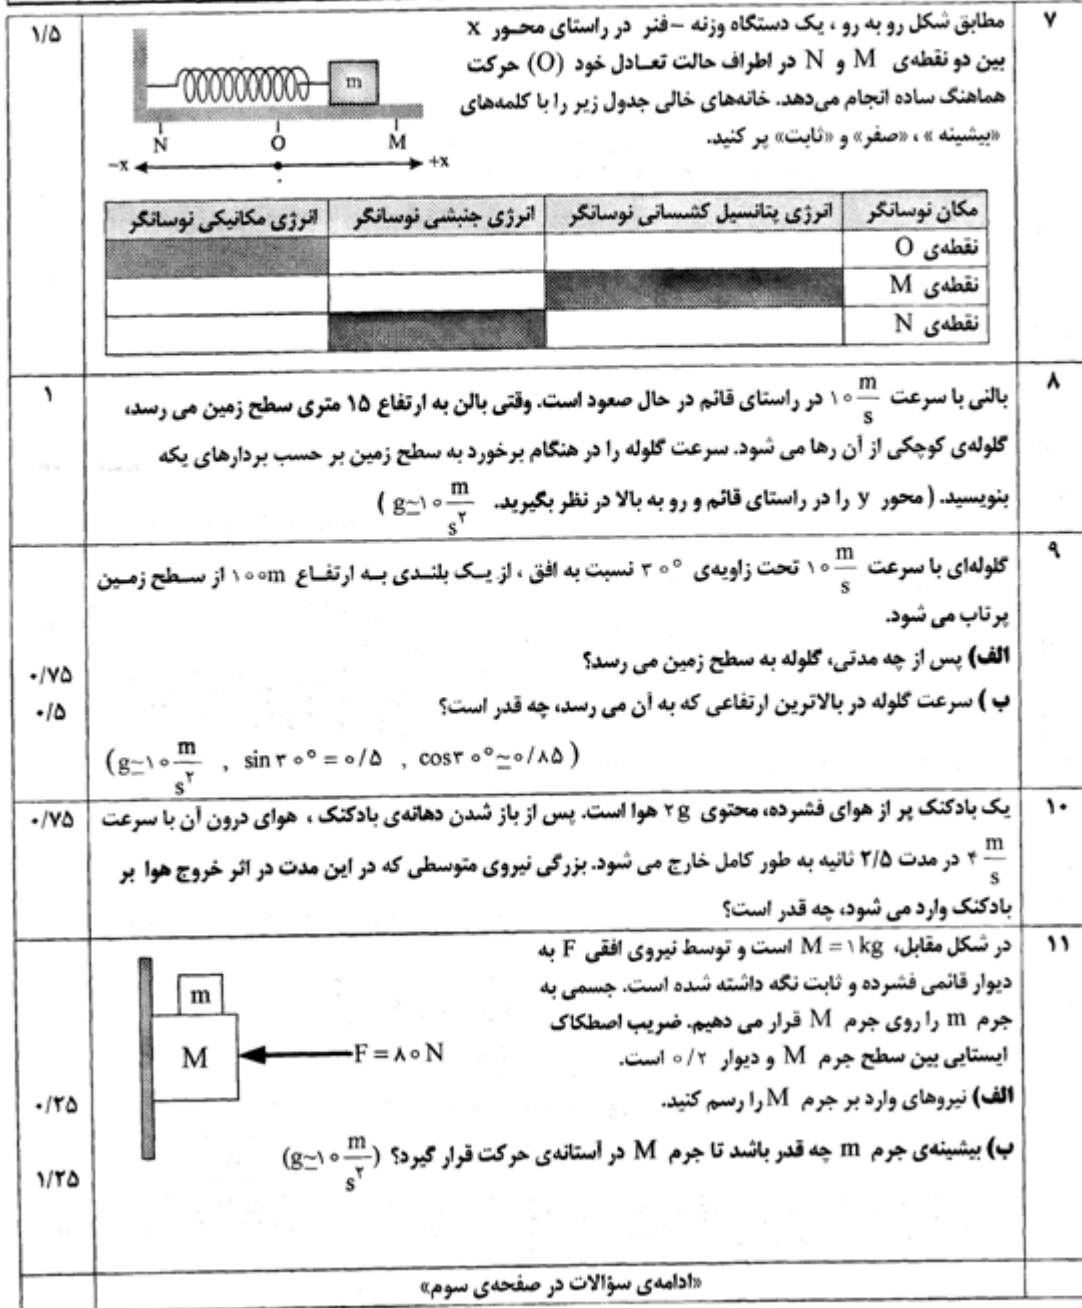 ۷
مطابق شکل رو به رو ، یک دستگاه وزنه –فنر در راستای محـور x
۱/۵
بین دو نقطه‌ی M و N در اطراف حالت تعـادل خود (O) حرکت
هماهنگ ساده انجام می‌دهد. خانه‌های خالی جدول زیر را با کلمه‌های
«بیشینه » ، «صفر» و «ثابت» پر کنید.
m
N O M
−x +x
مکان نوسانگر انرژی پتانسیل کشسانی نوسانگر انرژی جنبشی نوسانگر انرژی مکانیکی نوسانگر
نقطه‌ی O
نقطه‌ی M
نقطه‌ی N
۸
بالنی با سرعت ۱۰ m/s در راستای قائم در حال صعود است. وقتی بالن به ارتفاع ۱۵ متری سطح زمین می رسد،
۱
گلوله‌ی کوچکی از آن رها می شود. سرعت گلوله را در هنگام برخورد به سطح زمین بر حسب بردارهای یکه
بنویسید. ( محور y را در راستای قائم و رو به بالا در نظر بگیرید. g≃۱۰ m/s^۲ )
۹
گلوله‌ای با سرعت ۱۰ m/s تحت زاویه‌ی ۳۰° نسبت به افق ، از یـک بلنـدی بـه ارتفـاع ۱۰۰m از سـطح زمـین
پرتاب می شود.
الف) پس از چه مدتی، گلوله به سطح زمین می رسد؟
۰/۷۵
ب ) سرعت گلوله در بالاترین ارتفاعی که به آن می رسد، چه قدر است؟
۰/۵
(g≃۱۰ m/s^۲ , sin ۳۰° = ۰/۵ , cos۳۰° ≃۰/۸۵ )
۱۰
یک بادکنک پر از هوای فشرده، محتوی ۲g هوا است. پس از باز شدن دهانه‌ی بادکنک ، هوای درون آن با سرعت
۰/۷۵
۴ m/s در مدت ۲/۵ ثانیه به طور کامل خارج می شود. بزرگی نیروی متوسطی که در این مدت در اثر خروج هوا بر
بادکنک وارد می شود، چه قدر است؟
۱۱
در شکل مقابل، M =۱kg است و توسط نیروی افقی F به
دیوار قائمی فشرده و ثابت نگه داشته شده است. جسمی به
جرم m را روی جرم M قرار می دهیم. ضریب اصطکاک
ایستایی بین سطح جرم M و دیوار ۰/۲ است.
m
M
F = ۸۰ N
الف) نیروهای وارد بر جرم M را رسم کنید.
۰/۲۵
ب) بیشینه‌ی جرم m چه قدر باشد تا جرم M در آستانه‌ی حرکت قرار گیرد؟ (g≃۱۰ m/s^۲)
۱/۲۵
«ادامه‌ی سؤالات در صفحه‌ی سوم»